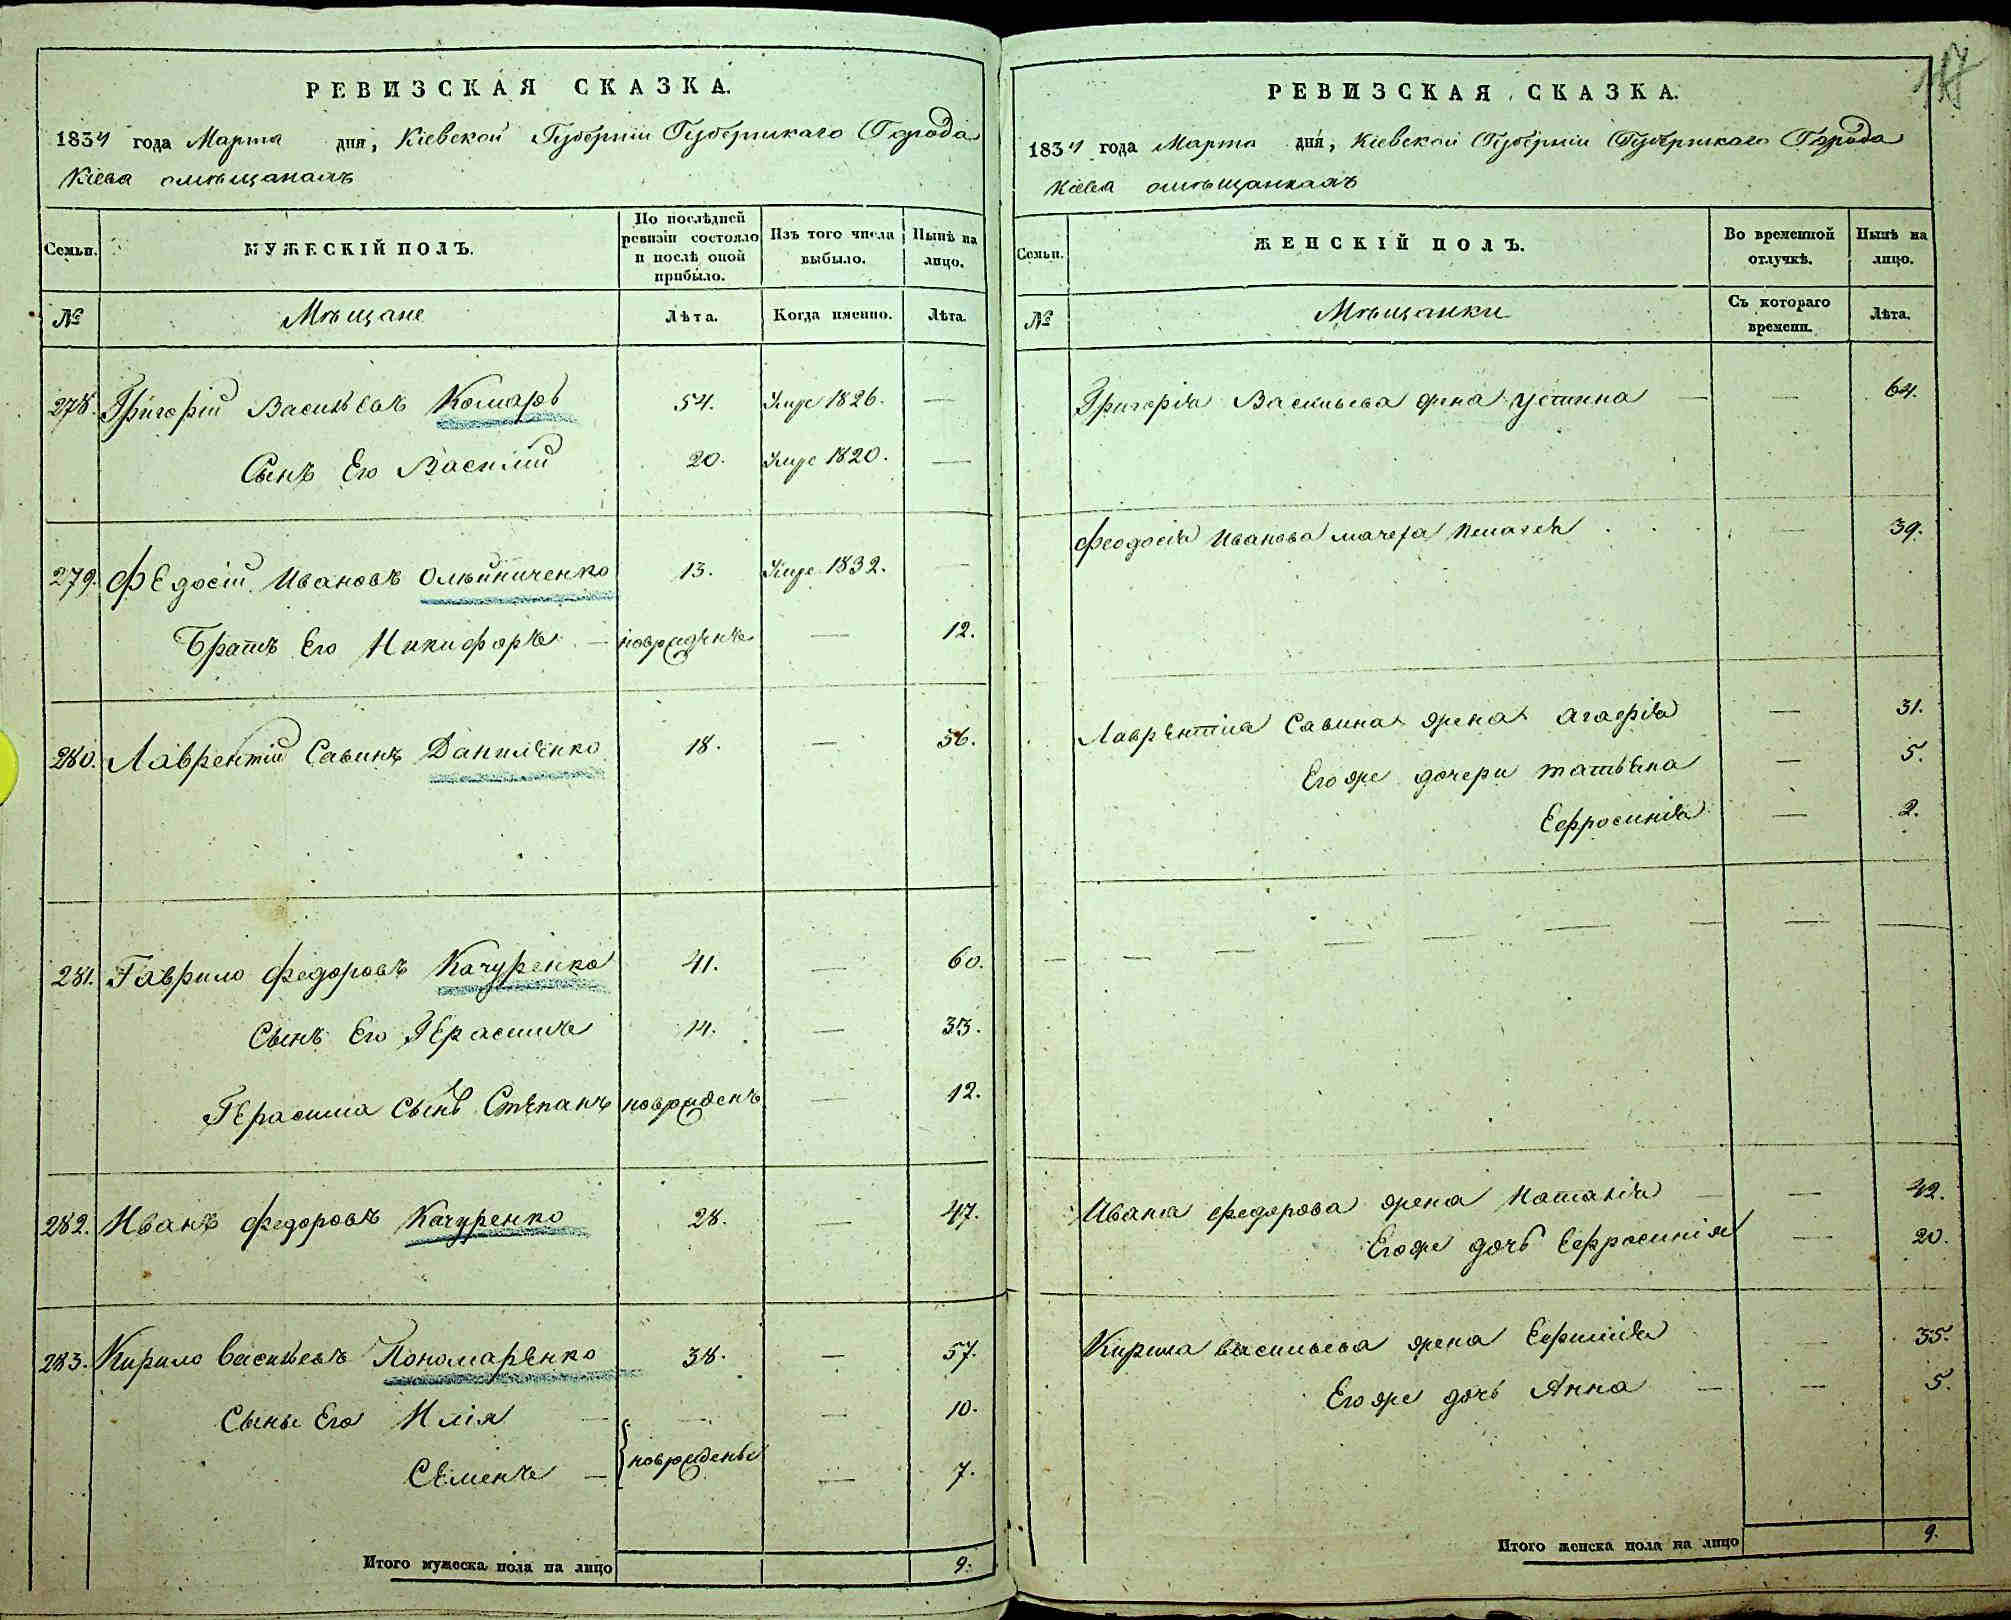 РЕВИЗСКАЯ СКАЗКА.
1834 года Марта дня, Кіевской Губерніи Губернскаго Города
Кіева омѣщанахъ
Семьи.
МУЖЕСКІЙ ПОЛЪ.
По послѣдней ревизіи состояло и послѣ оной прибыло.
Изъ того числа выбыло.
Нынѣ на лицо.
№
Мѣщане
Лѣта.
Когда именно.
Лѣта.
278. Григорій Васильевъ Комаръ 54. Умре 1826. —
Сынъ Его Василій 20. Умре 1820. —
279. Федосій Ивановъ Олѣйниченко 13. Умре 1832. —
Братъ Его Никифоръ — новрожденъ — 12.
280. Лаврентій Савинъ Даниленко 18. — 56.
281. Гаврило Федоровъ Качуренко 41. — 60.
Сынъ Его Герасимъ 14. — 33.
Герасима Сынъ Степанъ новрожденъ — 12.
282. Иванъ Федоровъ Качуренко 28. — 47.
283. Кирило Васильевъ Пономаренко 38. — 57.
Сыны Его Илія — — — 10.
Семенъ — новрожденые — 7.
Итого мужеска пола на лицо 9.
17
РЕВИЗСКАЯ СКАЗКА.
1834 года Марта дня, Кіевской Губерніи Губернскаго Города
Кіева омѣщанкахъ
Семьи.
ЖЕНСКІЙ ПОЛЪ.
Во временной отлучкѣ.
Нынѣ на лицо.
№
Мѣщанки
Съ котораго времени.
Лѣта.
Григорія Васильева жена Устинна — — 64.
Феодосія Иванова мачеха — 39.
Лаврентія Савина жена Агафія — 31.
Егоже дочери татьяна — 5.
Ефросинія — 2.
— — — — — — — — —
Ивана Федорова жена Наталія — — 42.
Егоже дочь Ефросинія — 20.
Кирила Васильева жена Ефимія — 35.
Егоже дочь Анна — — 5.
Итого женска пола на лицо 9.